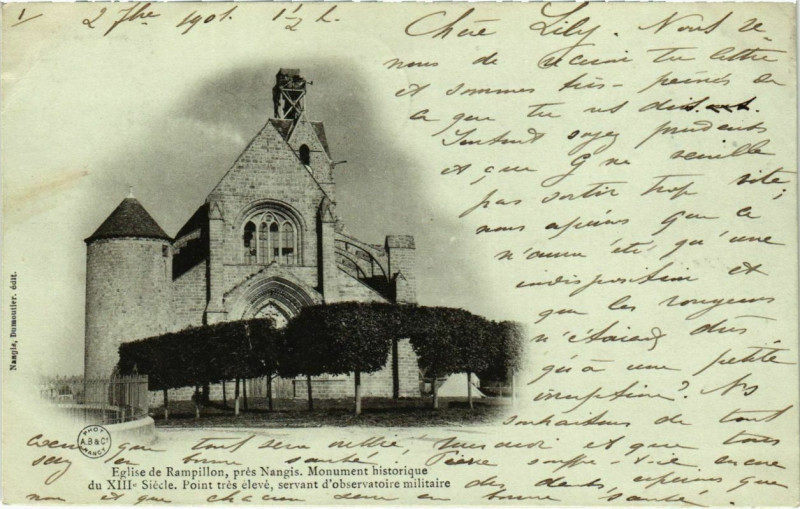 1/ 2 7bre 1901. 1 1/2 h.
Chère Lily. Nous ve-
nons de recevoir ta lettre
et sommes très-peinés de
ce que tu us disais.
Surtout soyez prudents
et que G ne veuille
pas sortir trop vite;
nous espérons que ce
n'aura été qu'une
indisposition et
que les rougeurs
n'étaient dûes
qu'à une petite
irruption? Ns
souhaitons de tout
coeur que tout sera oublié et que tous
soyez en bonne santé! Pierre souffre-t-il encore
des dents, espérons que
non et que chacun sera en bonne santé.
Nangis, Dumoutier, édit.
PHOT
A.B & Cie
NANCY
Eglise de Rampillon, près Nangis. Monument historique
du XIIIe Siècle. Point très élevé, servant d'observatoire militaire